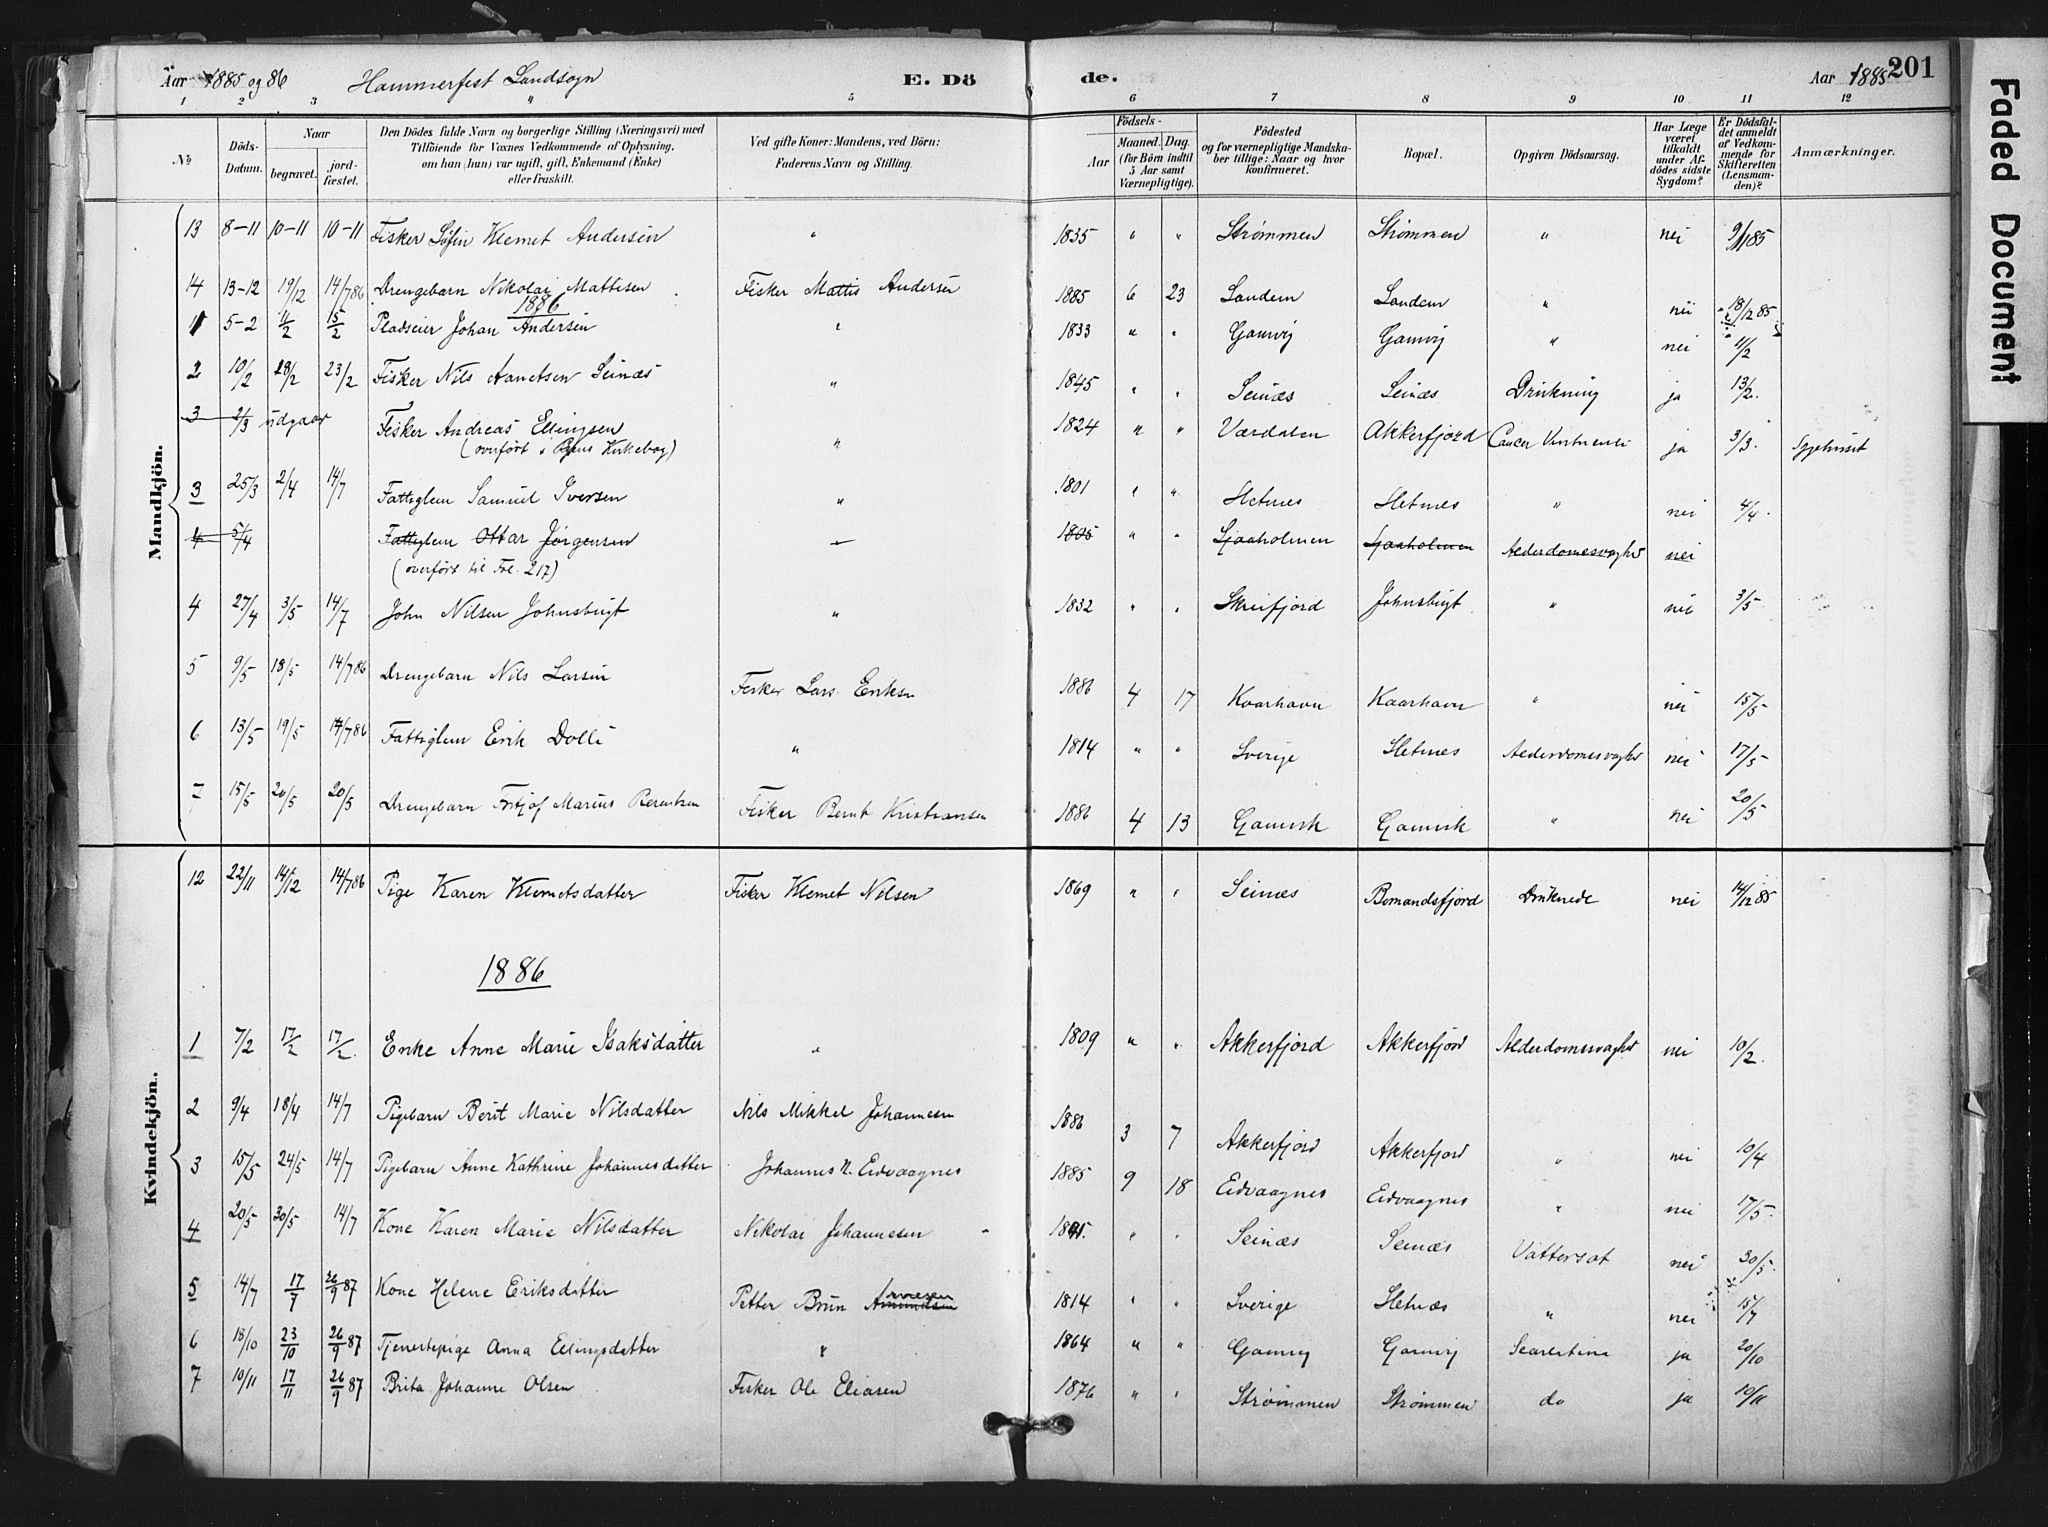 Aar 1885 og 86 Hammerfest Landsogn E. Dö de. Aar 1885 201
1 2 3 4 5 6 7 8 9 10 11 12
№ Döds-Datum. Naar begravet. jord-fæstet. Den Dödes fulde Navn og borgerlige Stilling (Næringsvei) med Tilföiende for Voxnes Vedkommende af Oplysning, om han (hun) var ugift, gift, Enkemand (Enke) eller fraskilt. Ved gifte Koner: Mandens, ved Börn: Faderens Navn og Stilling. Födsels- Aar Maaned. Dag. (for Börn indtil 5 Aar samt Værnepligtige). Födested og for værnepligtige Mandskaber tillige: Naar og hvor konfirmeret. Bopæl. Opgiven Dödsaarsag. Har Læge været tilkaldt under Afdödes sidste Sygdom? Er Dödsfaldet anmeldt af Vedkommende for Skifteretten (Lensmanden)? Anmærkninger.
Mandkjön.
13 8-11 10-11 10-11 Fisker Søfin Klemet Andersen " 1835 " " Strømmen Strømmen " nei 9/11 85
14 13-12 19/12 14/7 86 Drengebarn Nikolai Mattisen Fisker Mattis Andersen 1885 6 23 Sandem Sandem " nei 18/12 85
1886
1 5-2 11/2 15/2 Pladseier Johan Andersen " 1833 " " Gamvig Gamvig " nei 11/2
2 10/2 28/2 23/2 Fisker Nils Seinæs " 1845 " " Seinæs Seinæs Drukning ja 13/2
3 2/3 udgaar Fisker Andreas Ellingsen " 1824 " " Værdalen Akkerfjord Cancer Ventriculi ja 3/3. Sygehuset
(overført i Byens Kirkebog)
3 25/3 2/4 14/7 Fattiglem Samuel Iversen " 1801 " " Sletnes Sletnes " nei 4/4.
4 5/4 Fattiglem Ottar Jørgensen " 1805 " " Sjaaholmen Sjaaholmen Aelderdomssvaghed nei
(overført til Fol. 217)
4 27/4 3/5 14/7 John Nilsen Johnsbugt " 1832 " " Skreifjord Johnsbugt " nei 3/5
5 9/5 18/5 14/7 86 Drengebarn Nils Larsen Fisker Lars Eriksen 1886 4 17 Kaarhavn Kaarhavn " nei 15/5
6 13/5 19/5 14/7 86 Fattiglem Erik Dolli " 1814 " " Sverige Sletnes Aelderdomssvaghed nei 17/5
7 15/5 20/5 20/5 Drengebarn Fritjof Marius Berntsen Fisker Bernt Kristiansen 1886 4 13 Gamvik Gamvik " nei 20/5
Kvindekjön.
12 22/11 14/12 14/7 86 Pige Karen Klemetsdatter Fisker Klemet Nilsen 1869 " " Seinæs Bomandsfjord Druknede nei 14/12 85
1886
1 7/2 17/2 17/2. Enke Anne Marie Isaksdatter " 1809 " " Akkerfjord Akkerfjord Aelderdomssvaghed nei 10/2.
2 9/4 18/4 14/7 Pigebarn Berit Marie Nilsdatter Nils Mikkel Johannesen 1886 3 7 Akkerfjord Akkerfjord " nei 10/4
3 15/5 24/5 14/7 Pigebarn Anne Kathrine Johannesdatter Johannes N. Eidvaagnes 1885 9 18 Eidvaagnes Eidvaagnes " nei 17/5.
4 20/5 30/5 14/7 Kone Karen Marie Nilsdatter Nikolai Johannesen " " Seinæs Seinæs Vattersot nei 30/5.
5 14/7 17/9 26/9 87 Kone Helene Eriksdatter Petter Brun 1814 " " Sverige Sletnæs " nei 15/7
6 18/10 23/10 26/9 87 Tjenestepige Anna Ellingsdatter " 1864 " " Gamvig Gamvig Scarlatina ja 20/10
7 10/11 17/11 26/9 87 Brita Johanne Olsen Fisker Ole Eliasen 1876 " " Strømmen Strømmen do ja 10/11
Faded Document